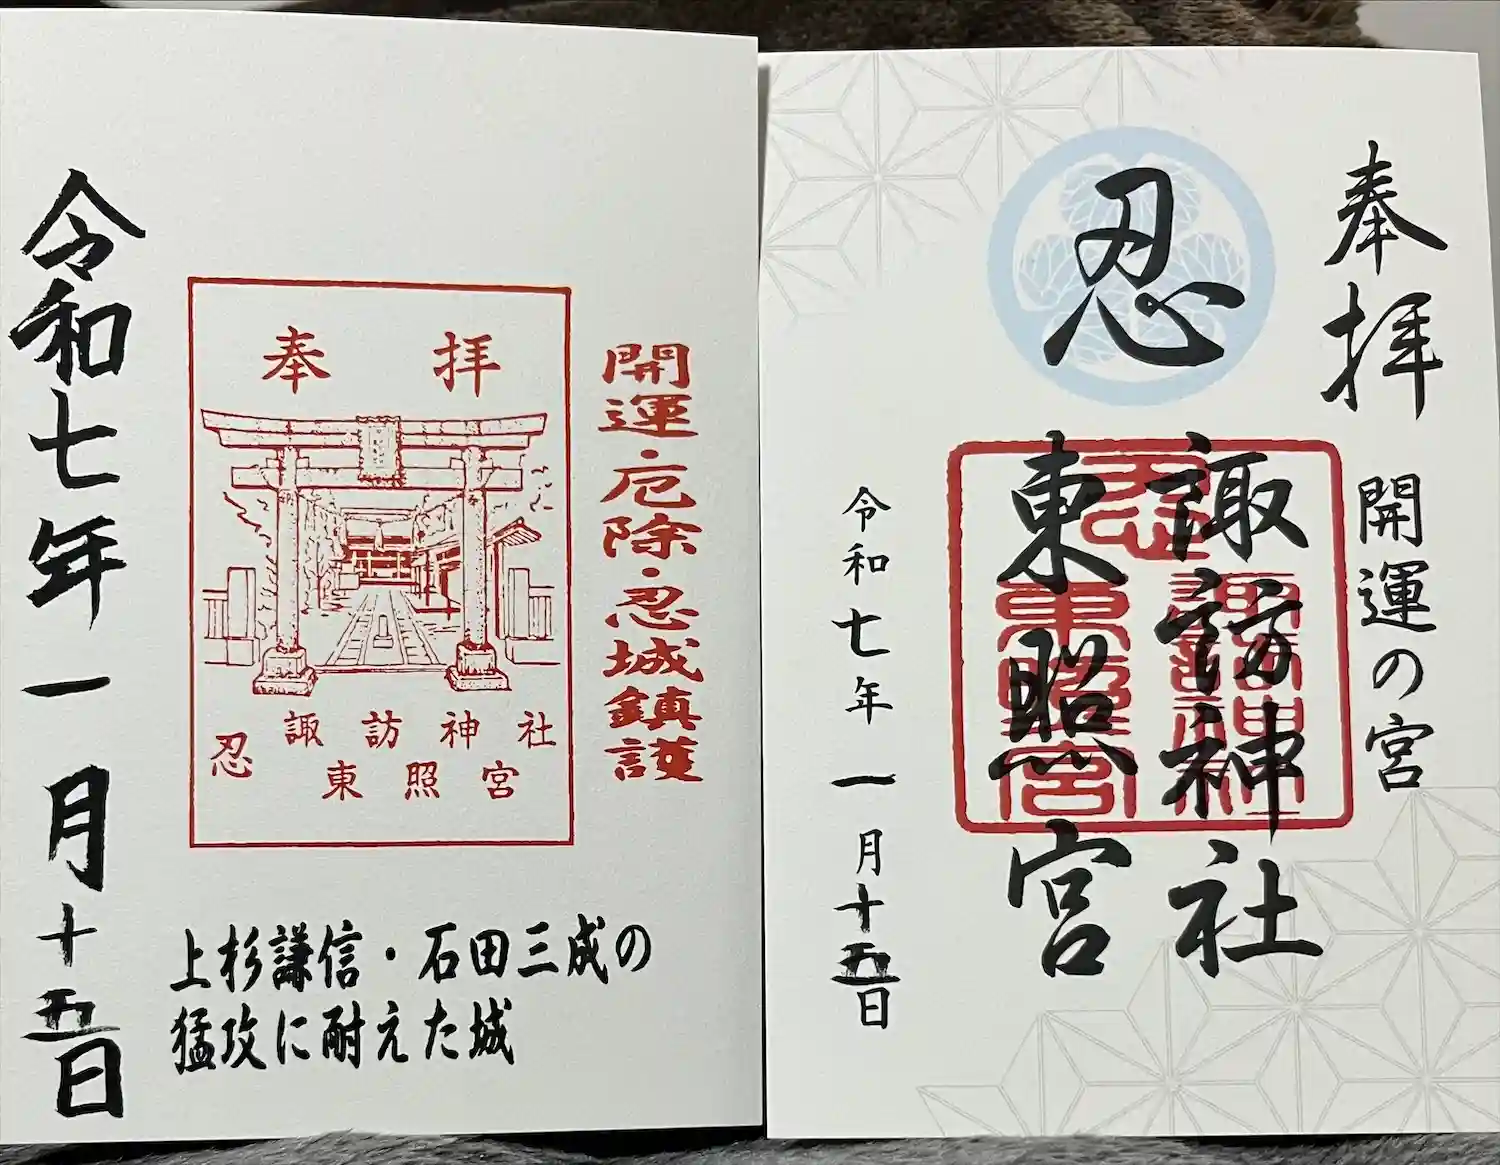 開運・厄除・忍城鎮護
奉拝
忍
諏訪神社
東照宮
上杉謙信・石田三成の
猛攻に耐えた城
令和七年一月十五日
奉拝
開運の宮
忍
諏訪神社
東照宮
忍
諏訪神社
東照宮
令和七年一月十五日